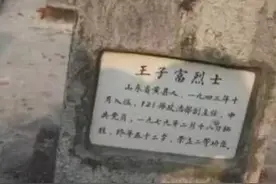 王子富烈士
山东省黄县人，一九四三年十
月入伍，121师政治部副主任，中
共党员，一九七九年二月十八日牺
牲，终年五十二岁，荣立二等功。